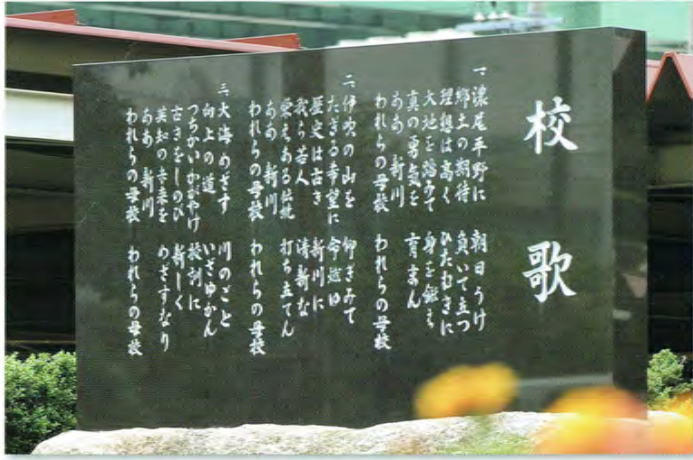 校歌
一、濃尾平野に 朝日うけ
郷土の期待 負いて立つ
理想は高く ひたむきに
大地を踏みて 身を鍛え
真の勇気を 育まん
ああ 新川
われらの母校 われらの母校
二、伊吹の山を 仰ぎみて
たぎる希望に 今
歴史は古き 新川に
我ら若人 清新な
栄えある伝統 打ち立てん
ああ 新川
われらの母校 われらの母校
三、大海めざす 川のごと
向上の道 いざゆかん
つちかい
古きをしのび 新しく
英知の未来を めざすなり
ああ 新川
われらの母校 われらの母校